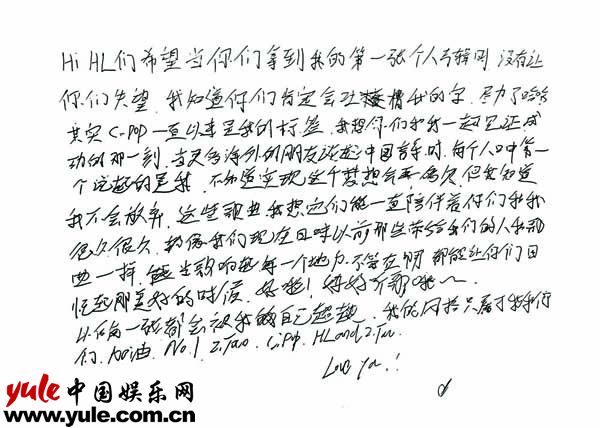 Hi HL们希望当你们拿到我的第一张个人专辑时没有让
你们失望. 我知道你们肯定会吐槽我的字. 尽力了哈哈
其实 C-POP 一直以来是我的标签. 我想你们和我一起见证成
功的那一刻. 当更多海外的朋友谈起中国音乐时. 每个人口中第一
个说起的是我. 不知道实现这个梦想会要多久. 但我知道
我不会放弃. 这些歌曲我想它们能一直陪伴着你们和我
很久很久. 就像我们现在回味以前那些带给我们的人和歌
曲一样. 每当歌响起每一个地方. 不管在哪 都能让你们回
忆起那美好的时候. 好啦! 好好听歌哦～
以后每一张都会被我的自己超越. 我
们. 加油. No.1 Z.Tao. C-POP. HL and Z.Tao
Love You!!
yule 中国娱乐网
www.yule.com.cn